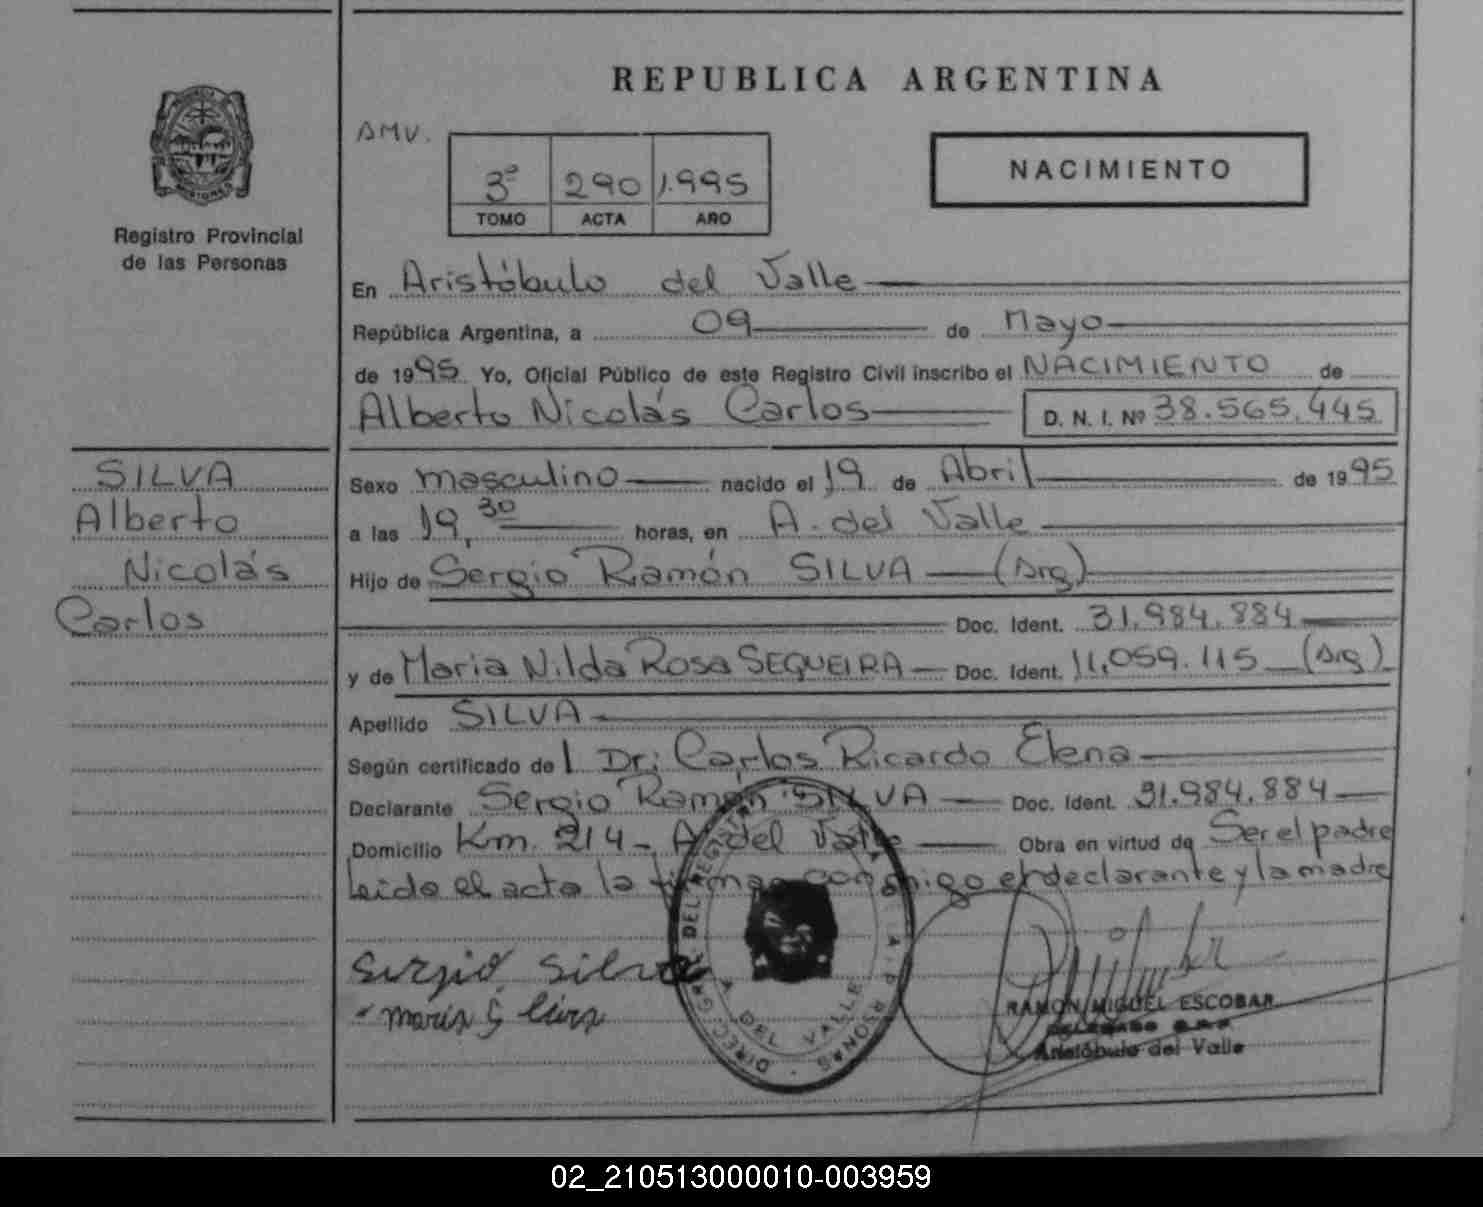 REPUBLICA ARGENTINA
AMV.
3º 290 1.995
TOMO ACTA AÑO
NACIMIENTO
MISIONES
Registro Provincial
de las Personas
En Aristóbulo del Valle
República Argentina, a 09 de Mayo
de 1995 Yo, Oficial Público de este Registro Civil inscribo el NACIMIENTO de
Alberto Nicolás Carlos D. N. I. Nº 38.565.445
SILVA
Alberto
Nicolás
Carlos
Sexo masculino nacido el 19 de Abril de 1995
a las 19,30 horas, en A. del Valle
Hijo de Sergio Ramón SILVA (Arg)
Doc. Ident. 31.984.884
y de Maria Nilda Rosa SEQUEIRA Doc. Ident. 11.059.115 (Arg)
Apellido SILVA
Según certificado de l Dr: Carlos Ricardo Elena
Declarante Sergio Ramón SILVA Doc. Ident. 31.984.884
Domicilio Km. 214 - A. del Valle Obra en virtud de Ser el padre
Leida el acta la firman conmigo el declarante y la madre
Sergio Silva
DEL REGISTRO
A. DEL VALLE
RAMON MIGUEL ESCOBAR
Aristóbulo del Valle
02_210513000010-003959